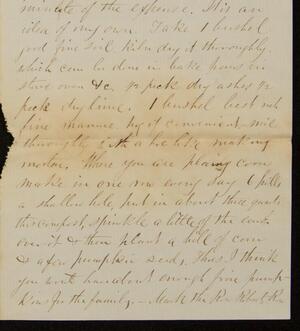 minute of the expense. It is an
idea of my own. Take 1 bushel
good fine soil kiln dry it thoroughly
which can be done in bake pans in
stove oven &c. ½ peck dry ashes ½
peck dry lime. 1 bushel best
fine manure by it convenient mix
thoroughly with a hoe like making
mortar. Where you are planting corn
make in one row every day 6 hills
a shallow hole, put in about three quarts
this compost, sprinkle a little of the earth
over it & then plant a hill of corn
& a few pumpkin seeds. Thus I think
you will have about enough fine pump-
kins for the family. — Mark the